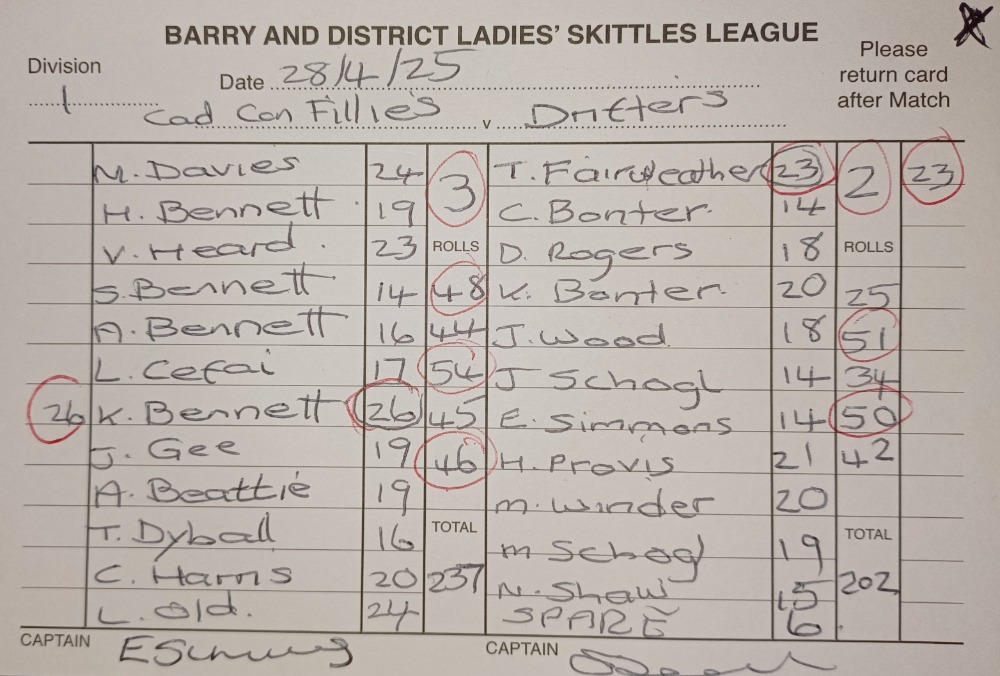 BARRY AND DISTRICT LADIES' SKITTLES LEAGUE
Please return card after Match
Division 1
Date 28/4/25
Cad Con Fillies v Drifters
M. Davies 24 3 T. Fairweather 23 2 23
H. Bennett 19 C. Bonter 14
V. Heard 23 ROLLS D. Rogers 18 ROLLS
S. Bennett 14 48 K. Bonter 20 25
A. Bennett 16 44 J. Wood 18 51
L. Cefai 17 54 J Schogl 14 34
26 K. Bennett 26 45 E. Simmons 14 50
J. Gee 19 46 H. Provis 21 42
A. Beattie 19 M. Winder 20
T. Dyball 16 TOTAL M Schogl 19 TOTAL
C. Harris 20 237 N. Shaw 15 202
L. Old. 24 SPARE 6
CAPTAIN CAPTAIN